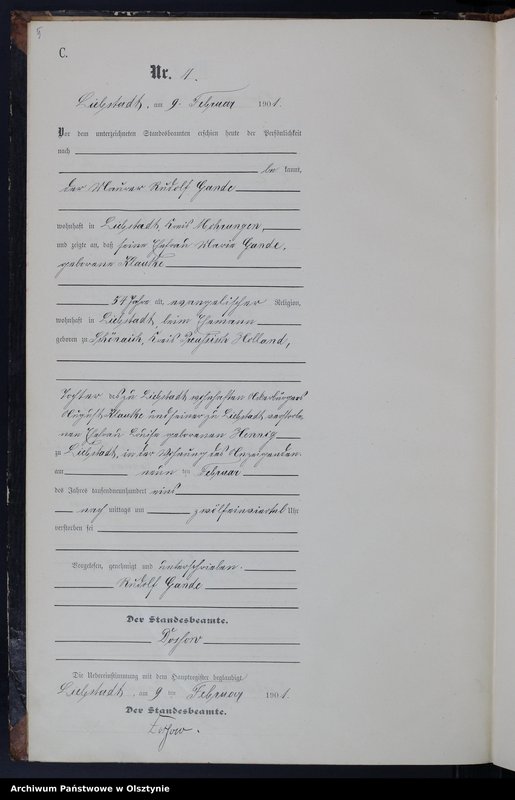 5
C.
Nr. 4.
Liebstadt, am 9. Februar 1901.
Vor dem unterzeichneten Standesbeamten erschien heute der Persönlichkeit
nach
be kannt,
der Maurer Rudolf Gande
wohnhaft in Liebstadt, Kreis Mohrungen,
und zeigte an, daß seine Ehefrau Marie Gande,
geborene Klautke
54 Jahre alt, evangelischer Religion,
wohnhaft in Liebstadt, beim Ehemann
geboren zu Schönaich, Kreis Preußisch Holland,
Tochter des zu Liebstadt wohnhaften Ackerbürgers
August Klautke und seiner zu Liebstadt verstorbe-
nen Ehefrau Louise geborenen Hennig
zu Liebstadt, in der Wohnung des Anzeigenden
am neun ten Februar
des Jahres tausendneunhundert eins
nach mittags um zwölfeinviertel Uhr
verstorben sei
Vorgelesen, genehmigt und unterschrieben.
Rudolf Gande
Der Standesbeamte.
Die Uebereinstimmung mit dem Hauptregister beglaubigt
Liebstadt, am 9 ten Februar 1901.
Der Standesbeamte.
Archiwum Państwowe w Olsztynie